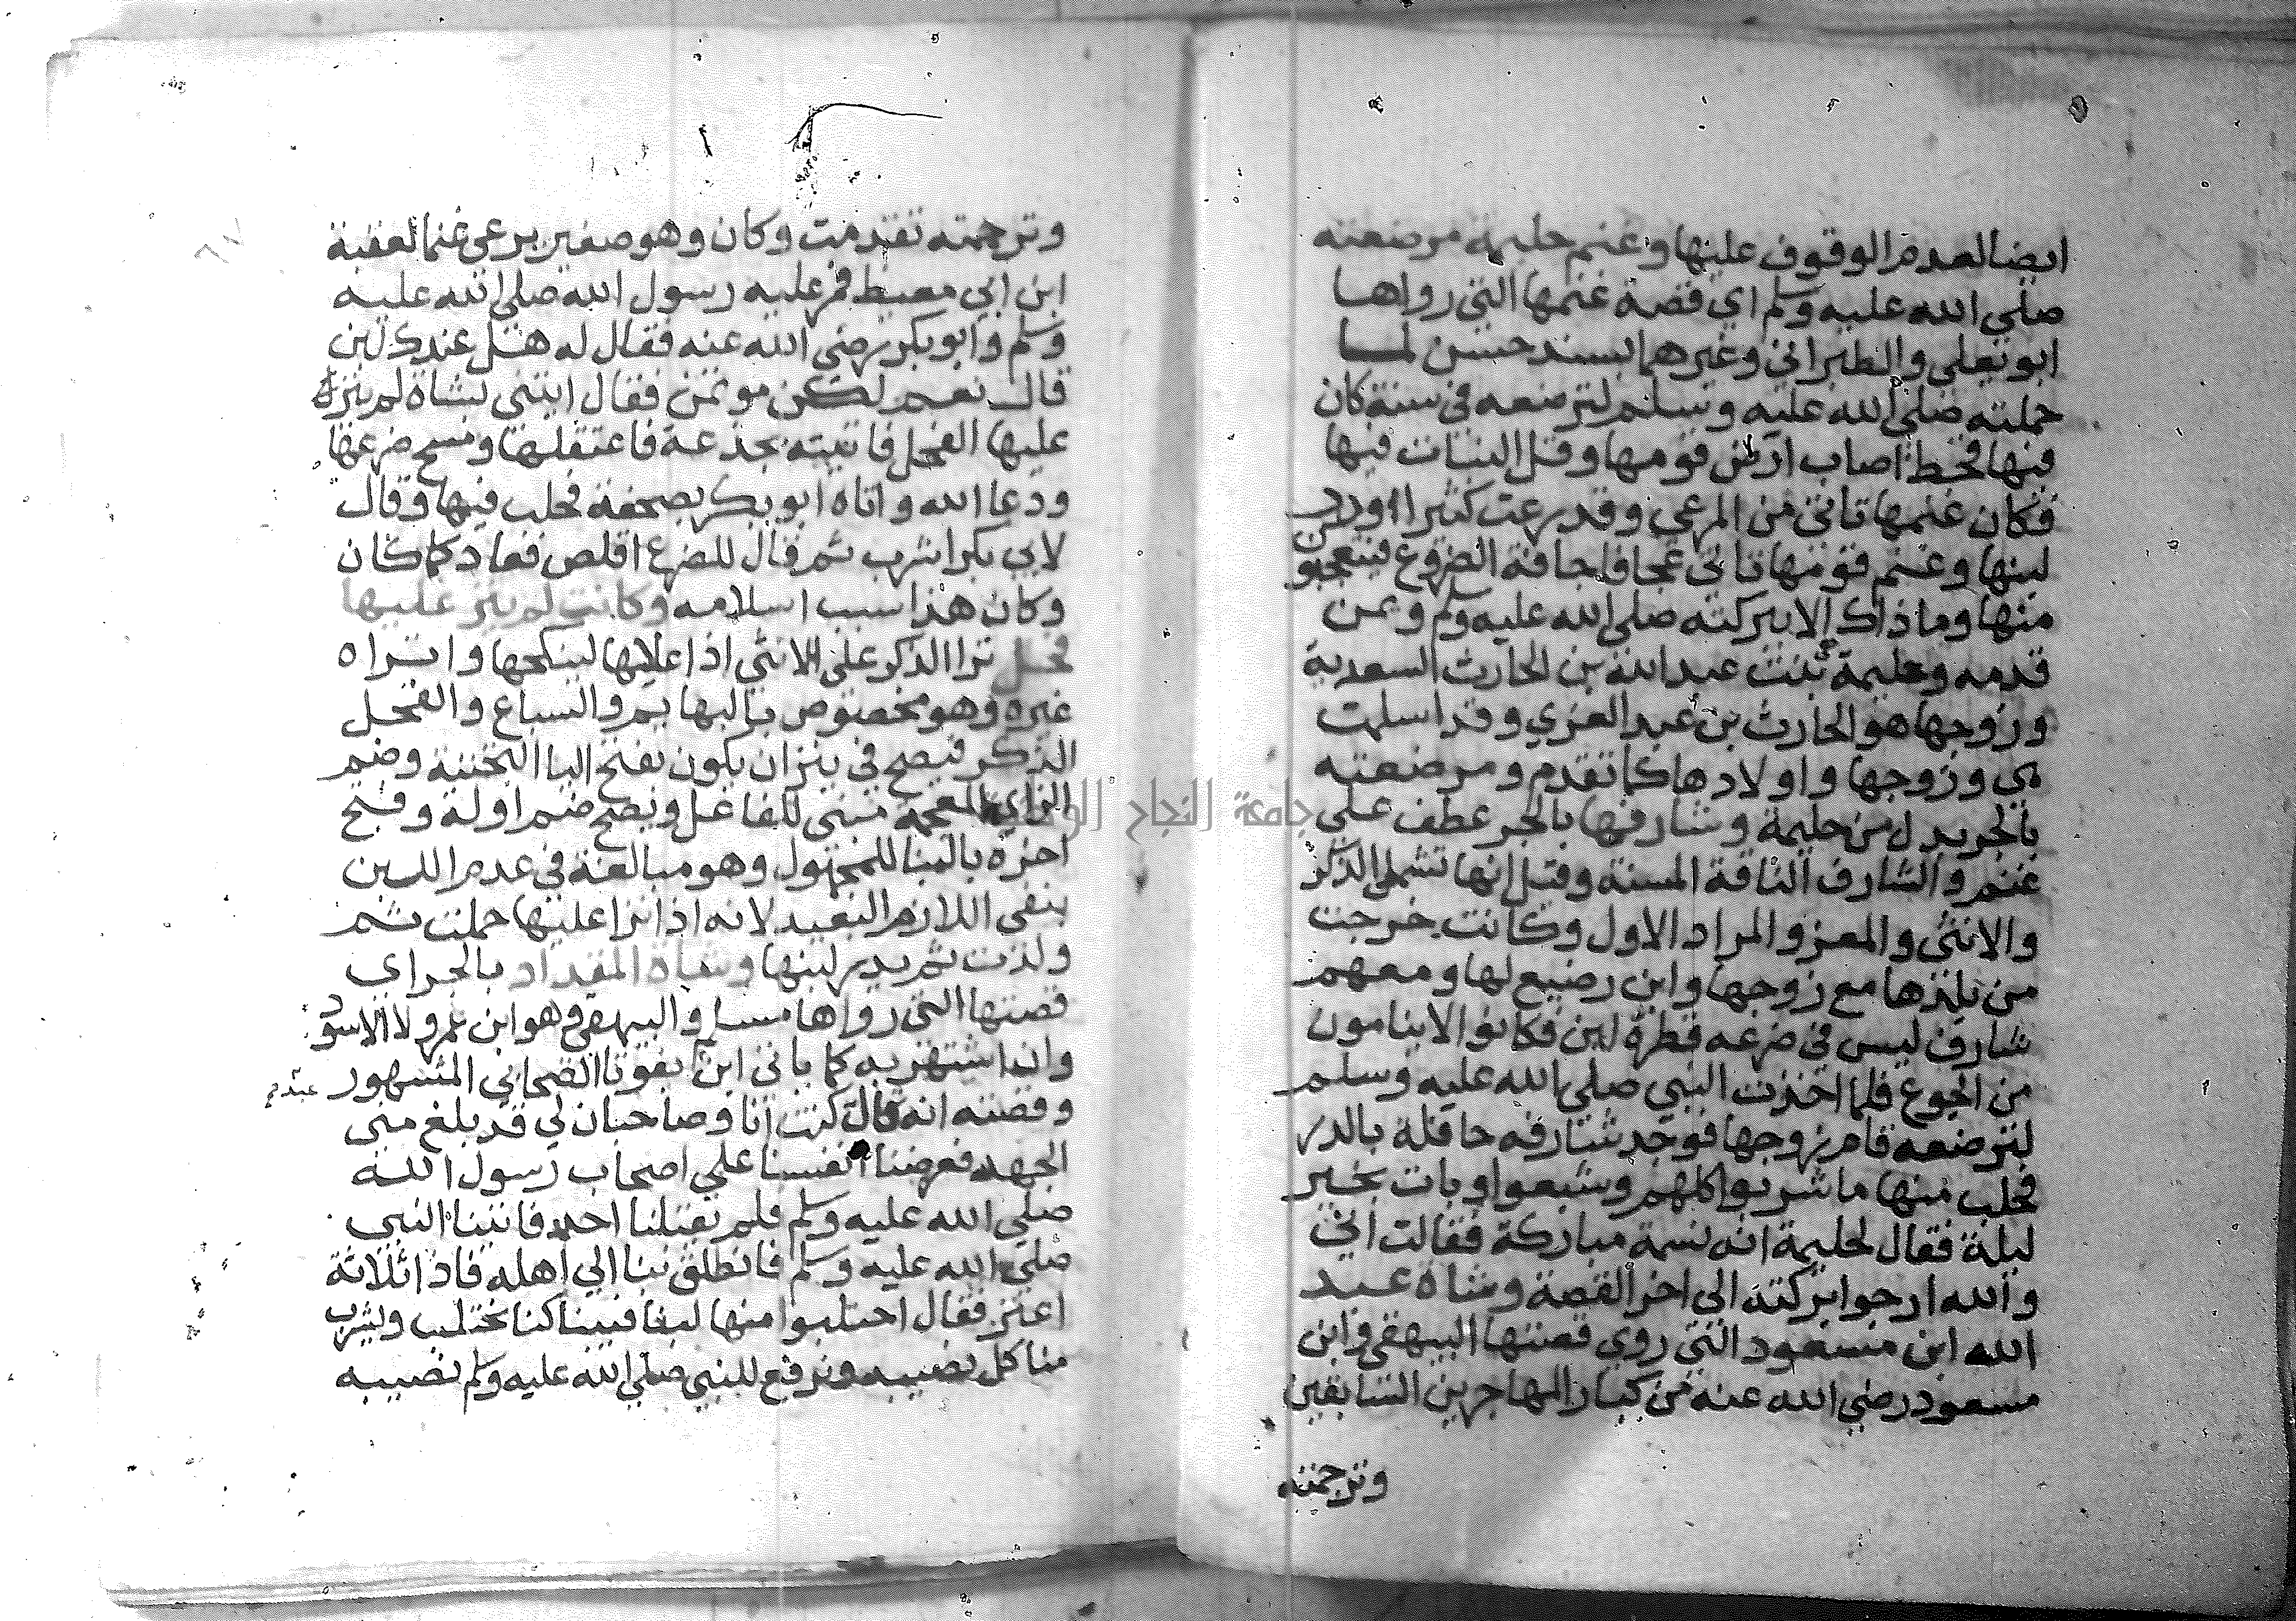 ايضا لعدم الوقوف عليها وغنم حليمة مرضعته
صلي الله عليه وسلم اي قصة غنمها التي رواها
ابو يعلي والطبراني وغيرهما بسند حسن لما
حملته صلي الله عليه وسلم لترضعه في سنة كان
فيها قحط اصاب ارض قومها وقل النبات فيها
فكان غنمها تاتي من المرعي وقد رعت كثيرا ودر
لبنها وغنم قومها تاتي عجافا جافة الضروع فيتعجبون
منها وما ذاك الا ببركته صلي الله عليه وسلم ويمن
قدمه وحليمة بنت عبد الله بن الحارث السعدية
وزوجها هو الحارث بن عبد العزي وقد اسلمت
هي وزوجها واولادها كما تقدم ومرضعته
بالجر بدل من حليمة وشارفها بالجر عطف علي
غنم والشارف الناقة المسنة وقيل انها تشمل الذكر
والانثي والمعز والمراد الاول وكانت خرجت
من بلدها مع زوجها وابن رضيع لها ومعهم
شارف ليس في ضرعه قطرة لبن فكانوا لا ينامون
من الجوع فلما اخذت النبي صلي الله عليه وسلم
لترضعه قام زوجها فوجد شارفه حافلة بالدر
فحلب منها ما شربوا كلهم وشبعوا وبات بخير
ليلة فقال لحليمة انه نسمة مباركة فقالت اني
والله ارجوا بركته الي اخر القصة وشاة عبد
الله ابن مسعود التي روي قصتها البيهقي وابن
مسعود رضي الله عنه من كبار المهاجرين السابقين
وترجمته
وترجمته تقدمت وكان وهو صغير يرعي غنما لعقبة
ابن ابي معيط فمر عليه رسول الله صلي الله عليه
وسلم وابو بكر رضي الله عنه فقال له هل عندك لبن
قال نعم لكن موتمن فقال ايتني بشاة لم ينزل
عليها الفحل فاتيته بجذعة فاعتقلها ومسح ضرعها
ودعا الله واتاه ابو بكر بصحفة فحلب فيها وقال
لابي بكر اشرب ثم قال للضرع اقلص فعاد كما كان
وكان هذا سبب اسلامه وكانت لم ينز عليها
فحل نزا الذكر علي الانثي اذا علاها لينكحها وانزاه
غيره وهو مخصوص بالبهايم والسباع والفحل
الذكر فيصح في ينز ان يكون بفتح اليا التحتية وضم
الزاي المعجمة مبني للفاعل ويصح ضم اوله وفتح
اخره بالبنا للمجهول وهو مبالغة في عدم اللبن
بنفي اللازم البعيد لانه اذا نزا عليها حملت ثم
ولدت ثم يدر لبنها وشاة المقداد بالجر اي
قصتها التي رواها مسلم والبيهقي وهو ابن عمرو لا الاسود
وانما اشتهر به كما ياتي ابن يغوث الصحابي المشهور
وقصته انه قال كنت انا وصاحبان لي قد بلغ مني
الجهد فعرضنا انفسنا علي اصحاب رسول الله
صلي الله عليه وسلم فلم يقبلنا احد فاتينا النبي
صلي الله عليه وسلم فانطلق بنا الي اهله فاذا ثلاثة
اعنز فقال احتلبوا منها لبنا فبينا كنا نحتلب ويشرب
منا كل نصيبه ونرفع للنبي صلي الله عليه وسلم نصيبه
جامعة النجاح الوطنية